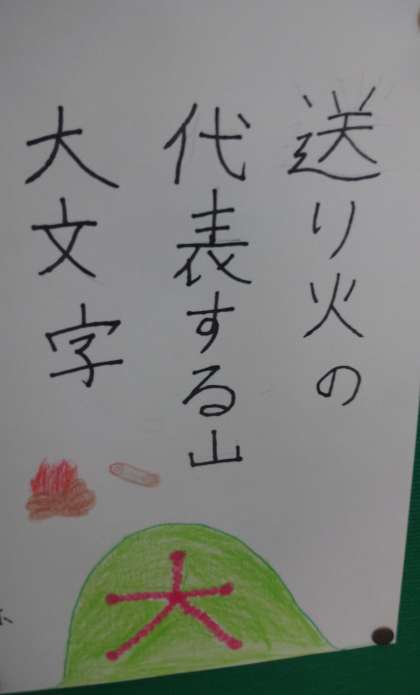 送り火の
代表する山
大文字
大